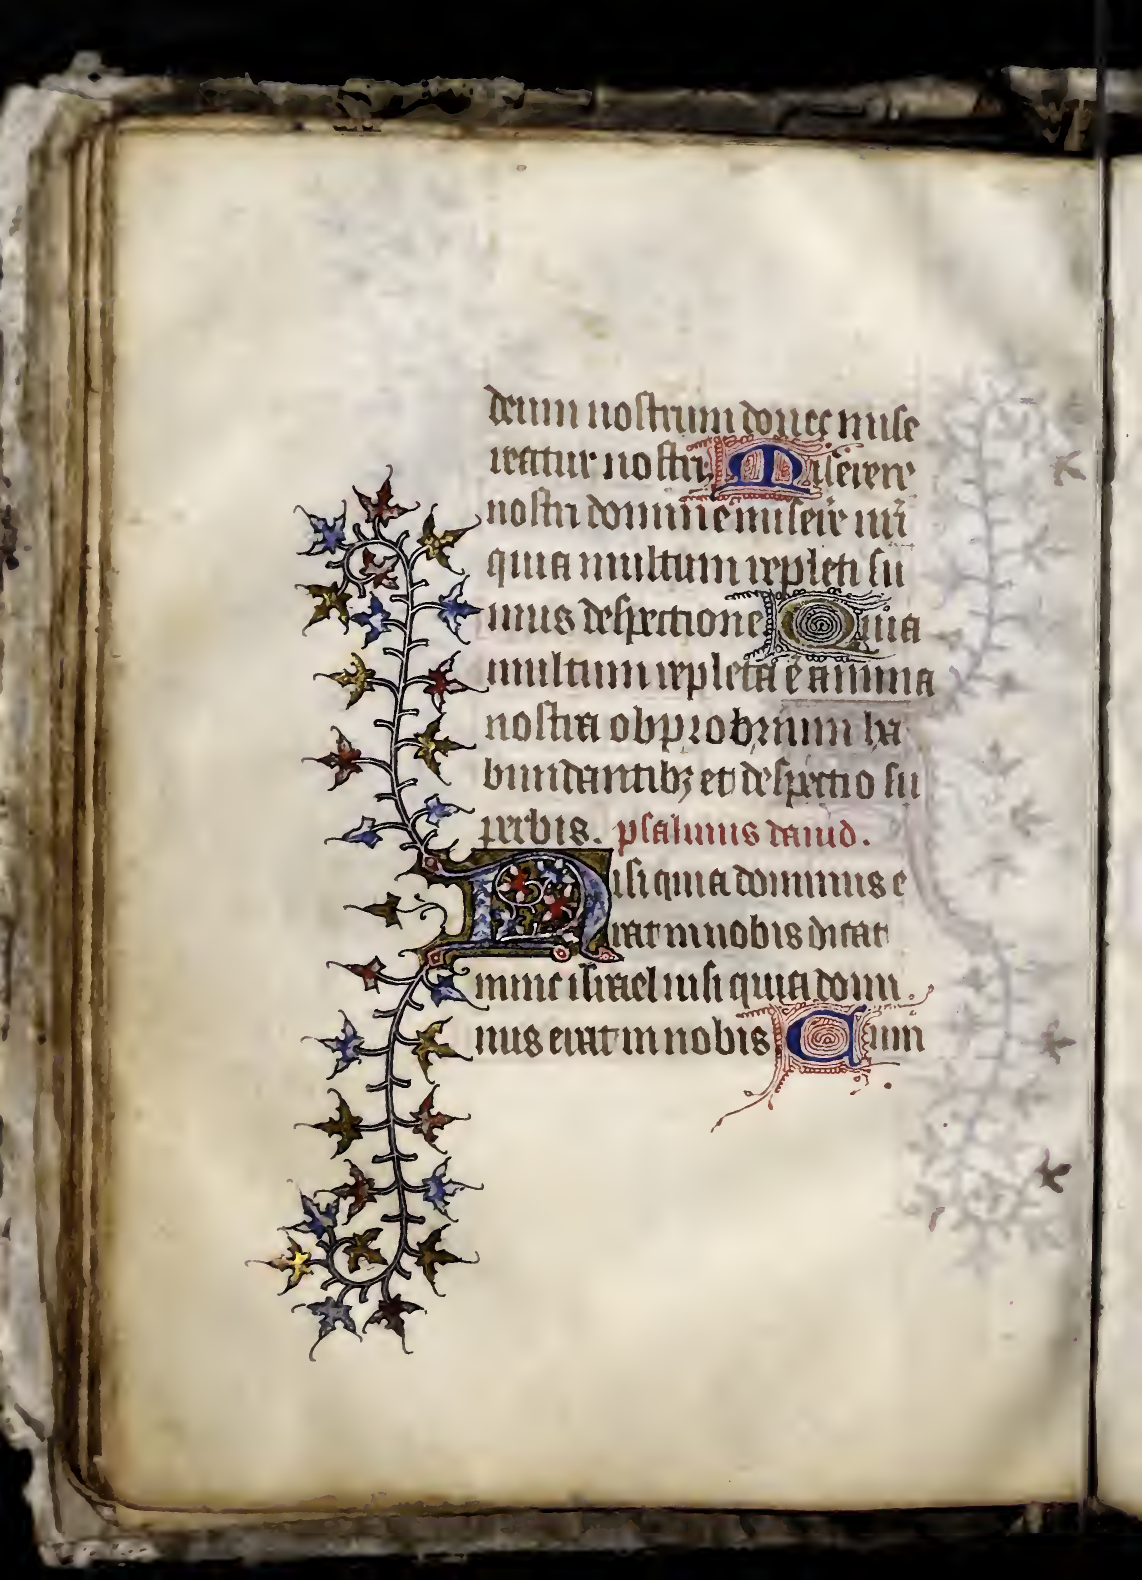 deum nostrum donec mise
reatur nostri Miserere
nostri domine misere nr̄i
quia multum repleti su
mus despectione Quia
multum repleta ē anima
nostra obprobrium ha
bundantibꝫ et despectio su
perbis. psalmus dauid.
Nisi quia dominus e
rat in nobis dicat
nunc israel nisi quia domi
nus erat in nobis Cum